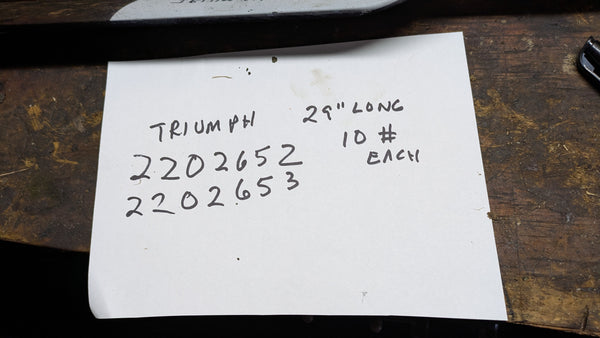 TRIUMPH
2202652
2202653
29" LONG
10 #
EACH